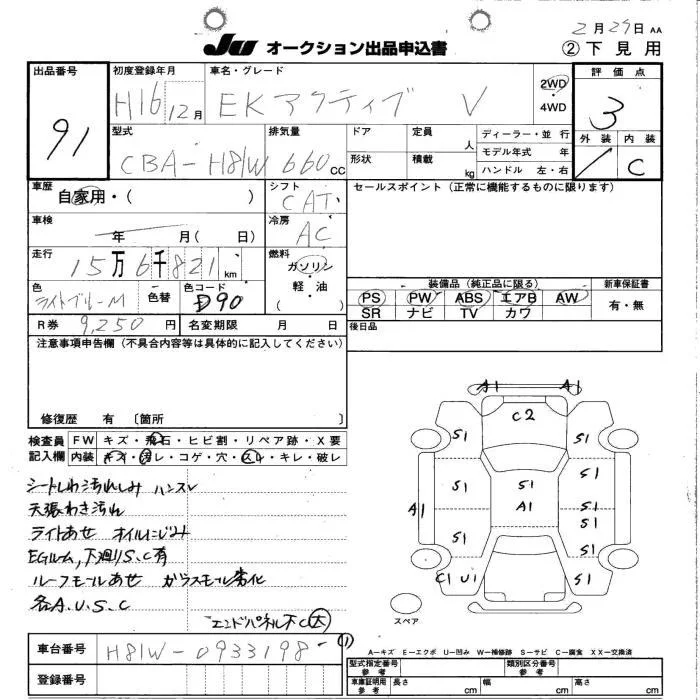 2月29日 AA
Ju オークション出品申込書 ②下見用
出品番号 91
初度登録年月 H16 12月
車名・グレード EKアクティブ V
2WD・4WD
評価点 3
外装 内装 C
型式 CBA-H81W
排気量 660cc
ドア 定員 人
形状 積載 kg
ディーラー・並行
モデル年式 年
ハンドル 左・右
車歴 自家用・( )
シフト CAT
セールスポイント(正常に機能するものに限ります)
車検 年 月( 日)
冷房 AC
走行 15万6千821km
燃料 ガソリン・軽油 ( )
色 ライトブルーM 色替 色コード D90
装備品(純正品に限る) 新車保証書
PS PW ABS エアB AW 有・無
SR ナビ TV カワ
R券 9,250円 名変期限 月 日
後日品
注意事項申告欄(不具合内容等は具体的に記入してください)
修復歴 有 〔箇所 〕
検査員記入欄 FW キズ・飛石・ヒビ割・リペア跡・X要
内装 キズ・汚レ・コゲ・穴・スレ・キレ・破レ
シートしわ汚れしみ ハンスレ
天張わき汚れ
ライトあせ オイルにじみ
EGルーム,下廻りS.C有
ルーフモールあせ ガラスモール劣化
各A.U.S.C
エンドパネル下C大
A1 A1
C2
S1 S1
S1 S1 S1
A1 A1 S1
S1 S1
C1 U1 S1
スペア
車台番号 H81W-0933198 (1)
登録番号
A-キズ E-エクボ U-凹み W-補修跡 S-サビ C-腐食 XX-交換済
型式指定番号 参考 類別区分番号 参考
車庫証明用 参考 長さ cm 幅 cm 高さ cm